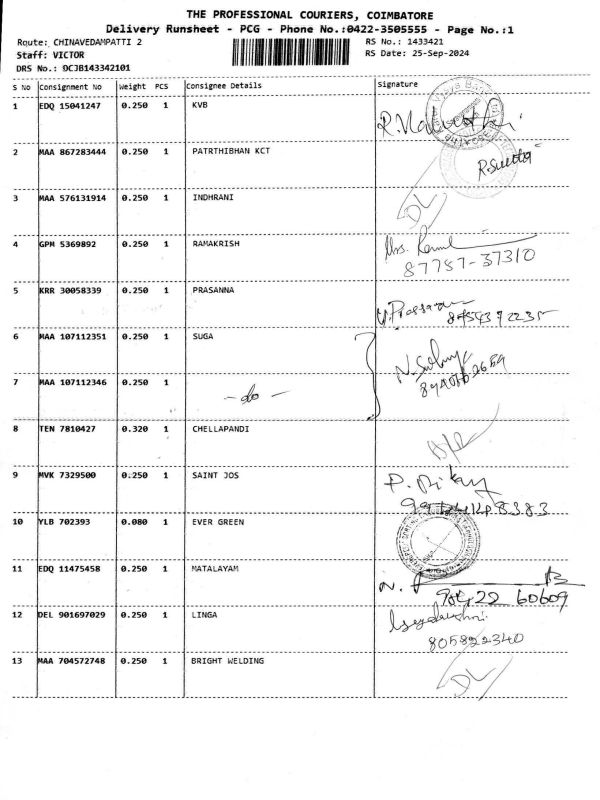 THE PROFESSIONAL COURIERS, COIMBATORE
Delivery Runsheet - PCG - Phone No.:0422-3505555 - Page No.:1
Route: CHINAVEDAMPATTI 2
RS No.: 1433421
Staff: VICTOR
RS Date: 25-Sep-2024
DRS No.: DCJB143342101
S No Consignment No Weight PCS Consignee Details Signature
1 EDQ 15041247 0.250 1 KVB
2 MAA 867283444 0.250 1 PATRTHIBHAN KCT
3 MAA 576131914 0.250 1 INDHRANI DL
4 GPM 5369892 0.250 1 RAMAKRISH Mrs.
87787-37310
5 KRR 30058339 0.250 1 PRASANNA
6 MAA 107112351 0.250 1 SUGA
7 MAA 107112346 0.250 1 - do -
8 TEN 7810427 0.320 1 CHELLAPANDI
9 MVK 7329500 0.250 1 SAINT JOS
10 YLB 702393 0.080 1 EVER GREEN
11 EDQ 11475458 0.250 1 MATALAYAM
60609
12 DEL 901697029 0.250 1 LINGA
805822340
13 MAA 704572748 0.250 1 BRIGHT WELDING DL